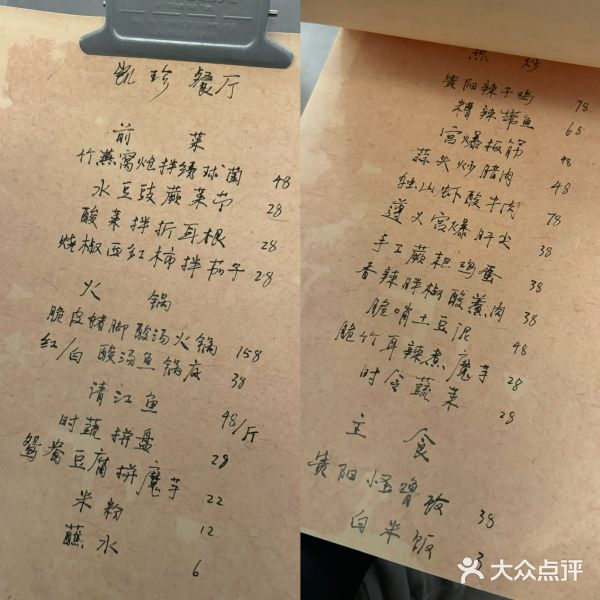 凯珍餐厅
前菜
竹燕窝炝拌绣球菌 48
水豆豉蕨菜节 28
酸菜拌折耳根 28
烧椒西红柿拌茄子 28
火锅
脆皮猪脚酸汤火锅 158
红/白酸汤鱼锅底 38
清江鱼 48/斤
时蔬拼盘 28
鸳鸯豆腐拼魔芋 22
米粉 12
蘸水 6
热炒
贵阳辣子鸡 78
糟辣带鱼 68
宫爆板筋 48
蒜火炒腊肉 48
独山虾酸牛肉 78
遵义宫爆肝尖 38
手工蕨粑鸡蛋 38
香辣胖椒酸煮肉 38
脆哨土豆泥 48
脆竹耳辣煮魔芋 28
时令蔬菜 28
主食
贵阳怪噜饭 38
白米饭 3
大众点评